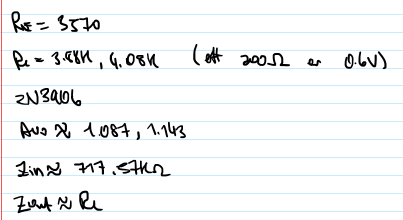 RE = 3570
Rc = 3.88K, 4.08K (off 200Ω or 0.6V)
2N3906
Avo ≈ 1.087, 1.143
Zin ≈ 717.57KΩ
Zout ≈ Rc